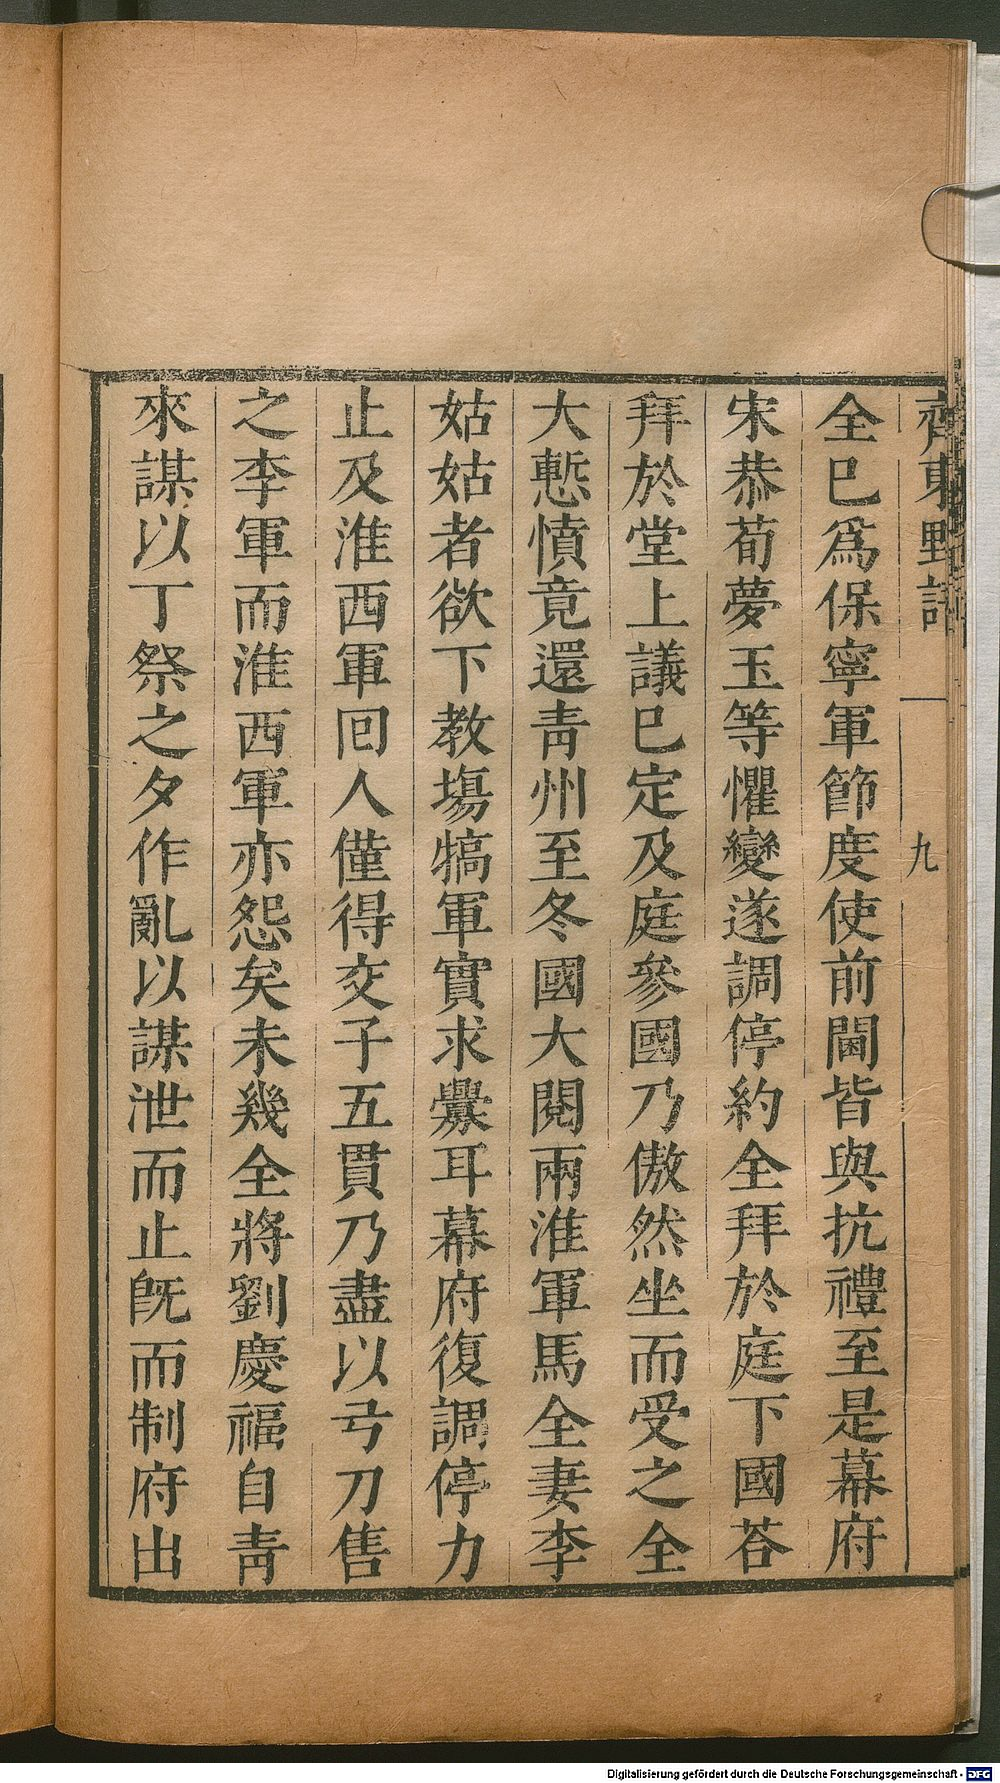 齊東野語
九
全巳爲保寧軍節度使前閫皆與抗禮至是幕府
宋恭荀夢玉等懼變遂調停約全拜於庭下國荅
拜於堂上議巳定及庭參國乃傲然坐而受之全
大慙憤竟還青州至冬國大閱兩淮軍馬全妻李
姑姑者欲下教塲犒軍實求釁耳幕府復調停力
止及淮西軍回人僅得交子五貫乃盡以弓刀售
之李軍而淮西軍亦怨矣未幾全將劉慶福自青
來謀以丁祭之夕作亂以謀泄而止旣而制府出
Digitalisierung gefördert durch die Deutsche Forschungsgemeinschaft - DFG